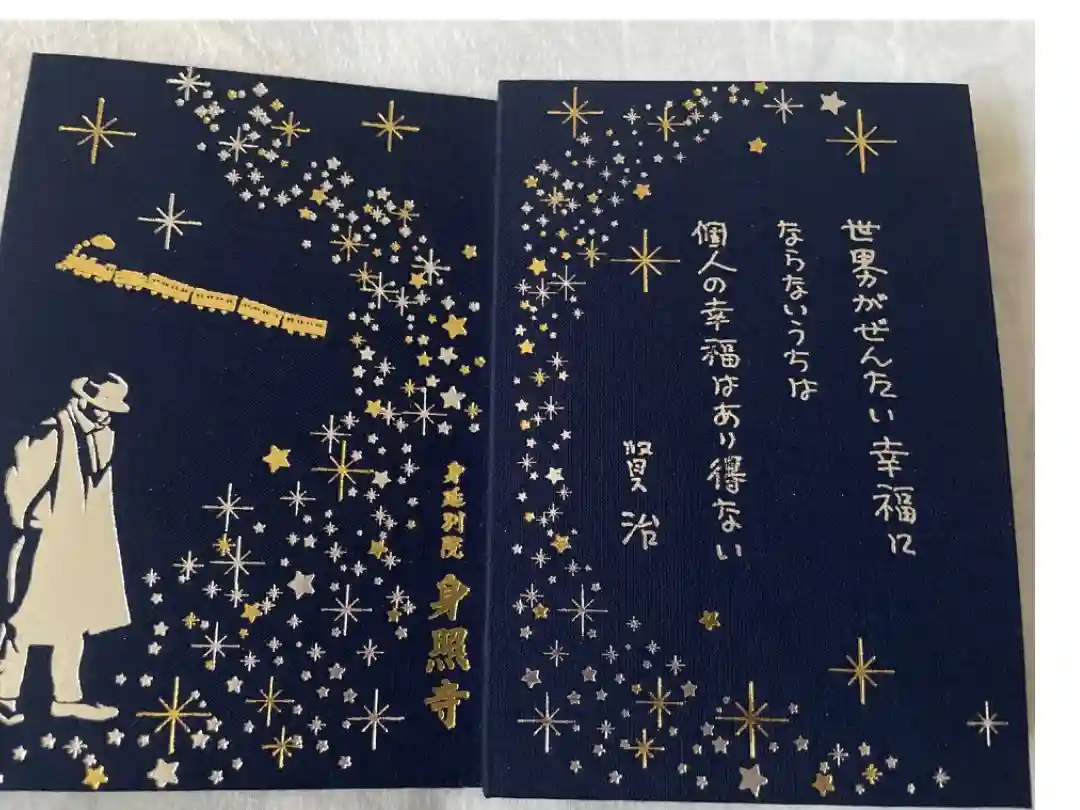 身延別院
身照寺
世界がぜんたい幸福に
ならないうちは
個人の幸福はあり得ない
賢治